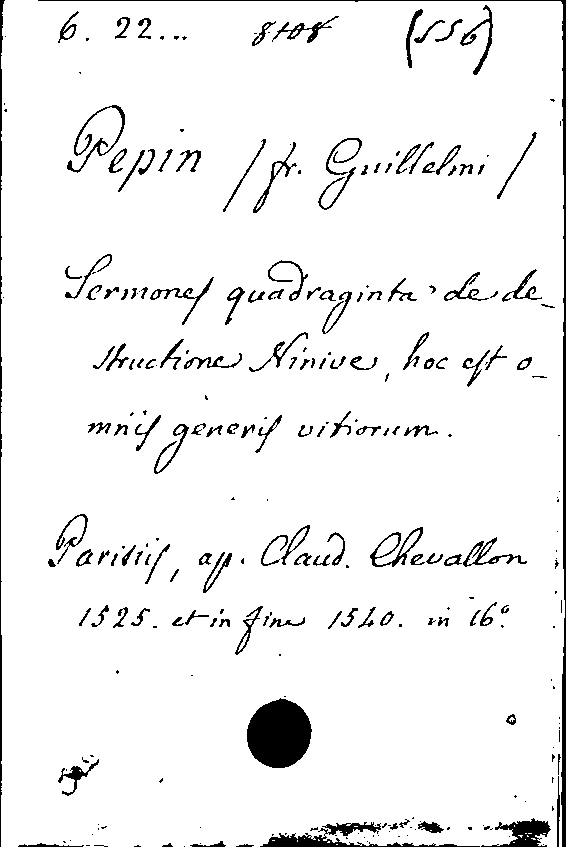 6. 22... 8108 (556)
Pepin /fr. Guillelmi/
Sermones quadraginta de de-
structione Ninive, hoc est o-
mnis generis vitiorum.
Parisiis, ap. Claud. Chevallon
1525. et in fine 1540. in 16°.